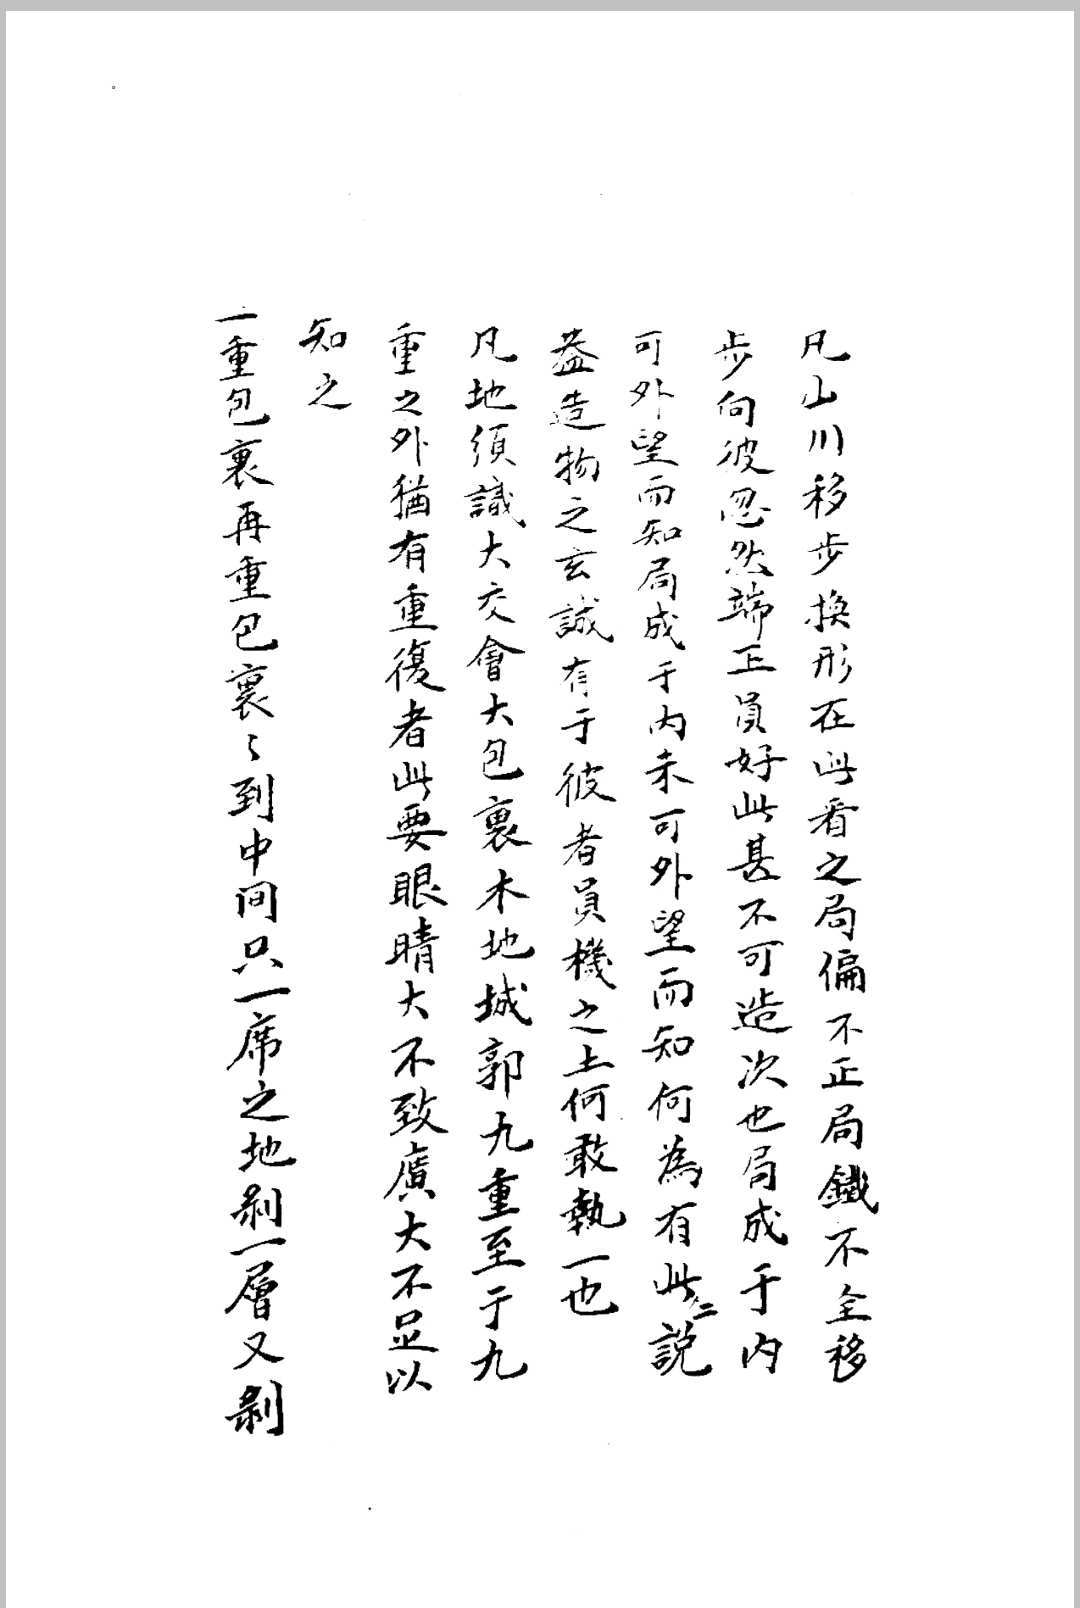 凡山川移步換形在此看之局偏不正局鐵不全移
步向彼忽然端正員好此甚不可造次也局成于内
可外望而知局成于内未可外望而知何為有此二說
葢造物之玄誠有于彼者員機之土何敢執一也
凡地須識大交會大包裹木地城郭九重至于九
重之外猶有重復者此要眼睛大不致廣大不足以
知之
一重包裹再重包裹〻到中间只一席之地剝一層又剝